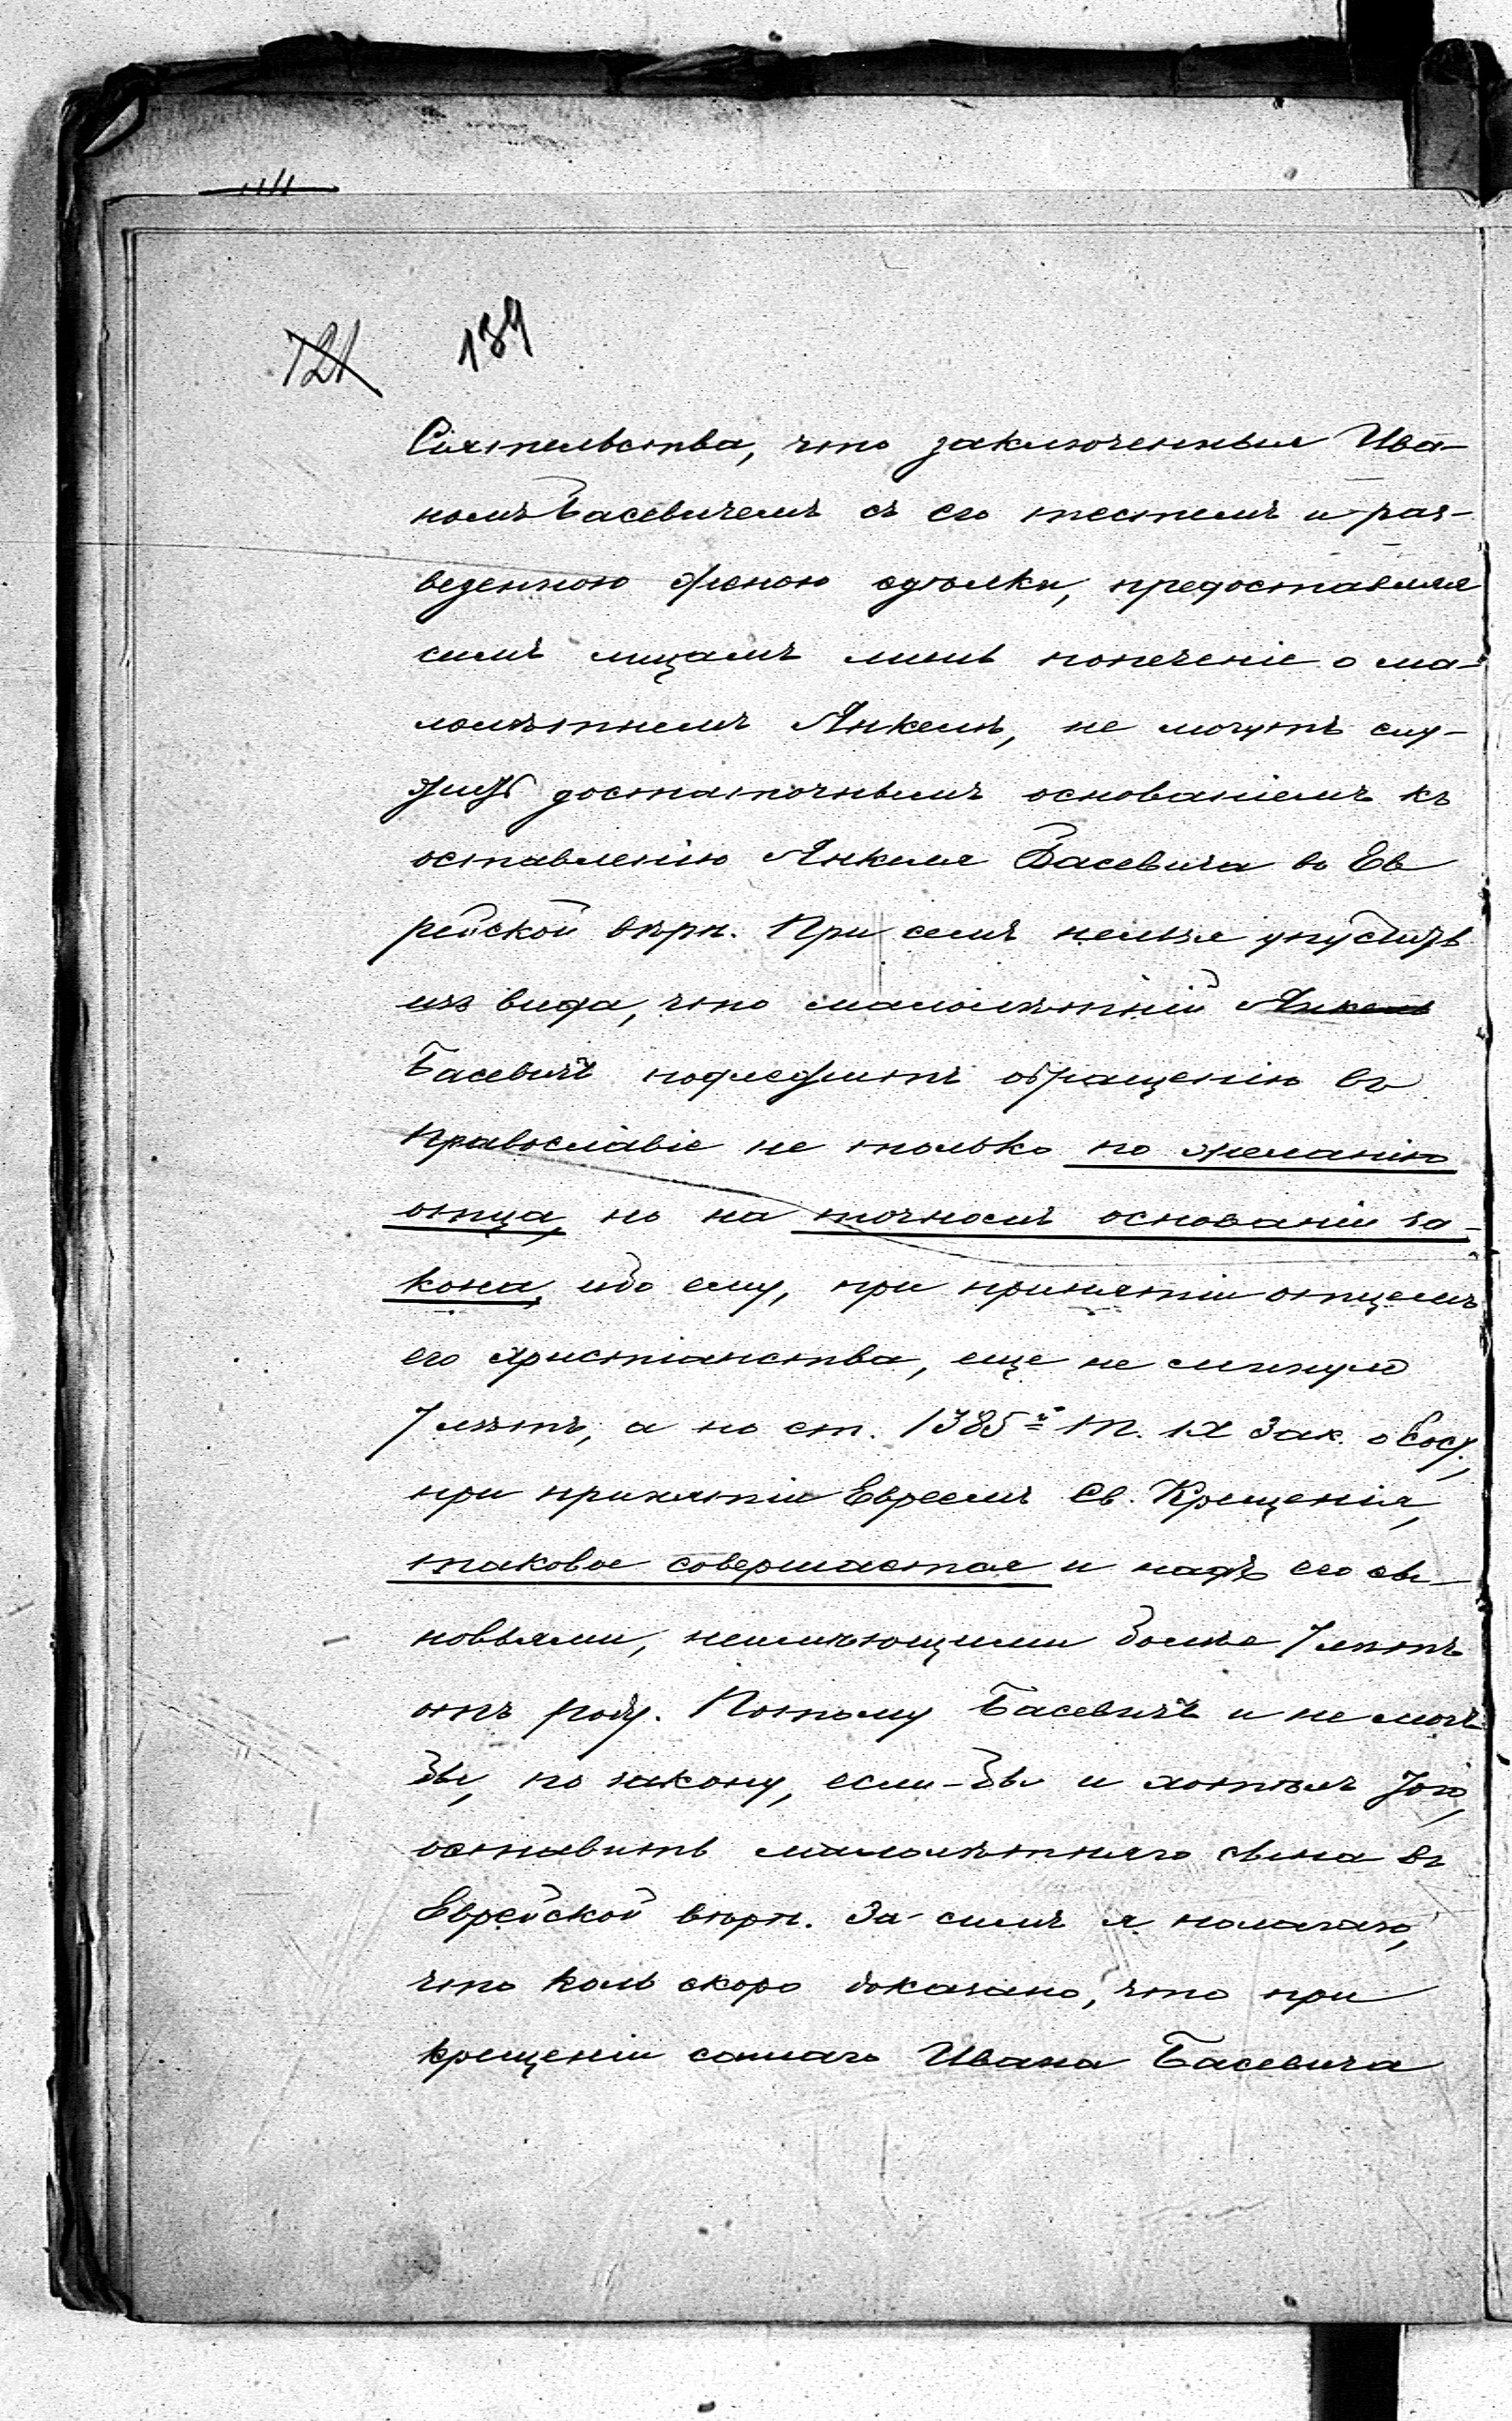 121
139
Сіятельства, что заключенныя Ива-
номъ Басевичемъ съ его тестемъ и раз-
веденною женою сдѣлки, предоставляя
симъ лицамъ лишь попеченіе о ма-
лолѣтнемъ Янкелѣ, не могутъ слу-
жить достаточнымъ основаніемъ къ
оставленію Янкеля Басевича въ Ев
рейской вѣрѣ. При семъ нельзя упустить
изъ вида, что малолѣтній Янкель
Басевичъ подлежитъ обращенію въ
Православіе не только по желанію
отца, но на точномъ основаніи за-
кона, ибо ему, при принятіи отцемъ
его христіанства, еще не минуло
7 лѣтъ, а по ст. 1385й т. IX Зак. о Сост.,
при принятіи Евреемъ Св. Крещенія,
таковое совершается и надъ его сы-
новьями, неимѣющими болѣе 7 лѣтъ
отъ роду. Потому Басевичъ и не могъ
бы, по закону, если-бы и хотѣлъ того,
оставить малолѣтняго сына въ
Еврейской вѣрѣ. За симъ я полагаю,
что коль скоро доказано, что при
крещеніи самаго Ивана Басевича